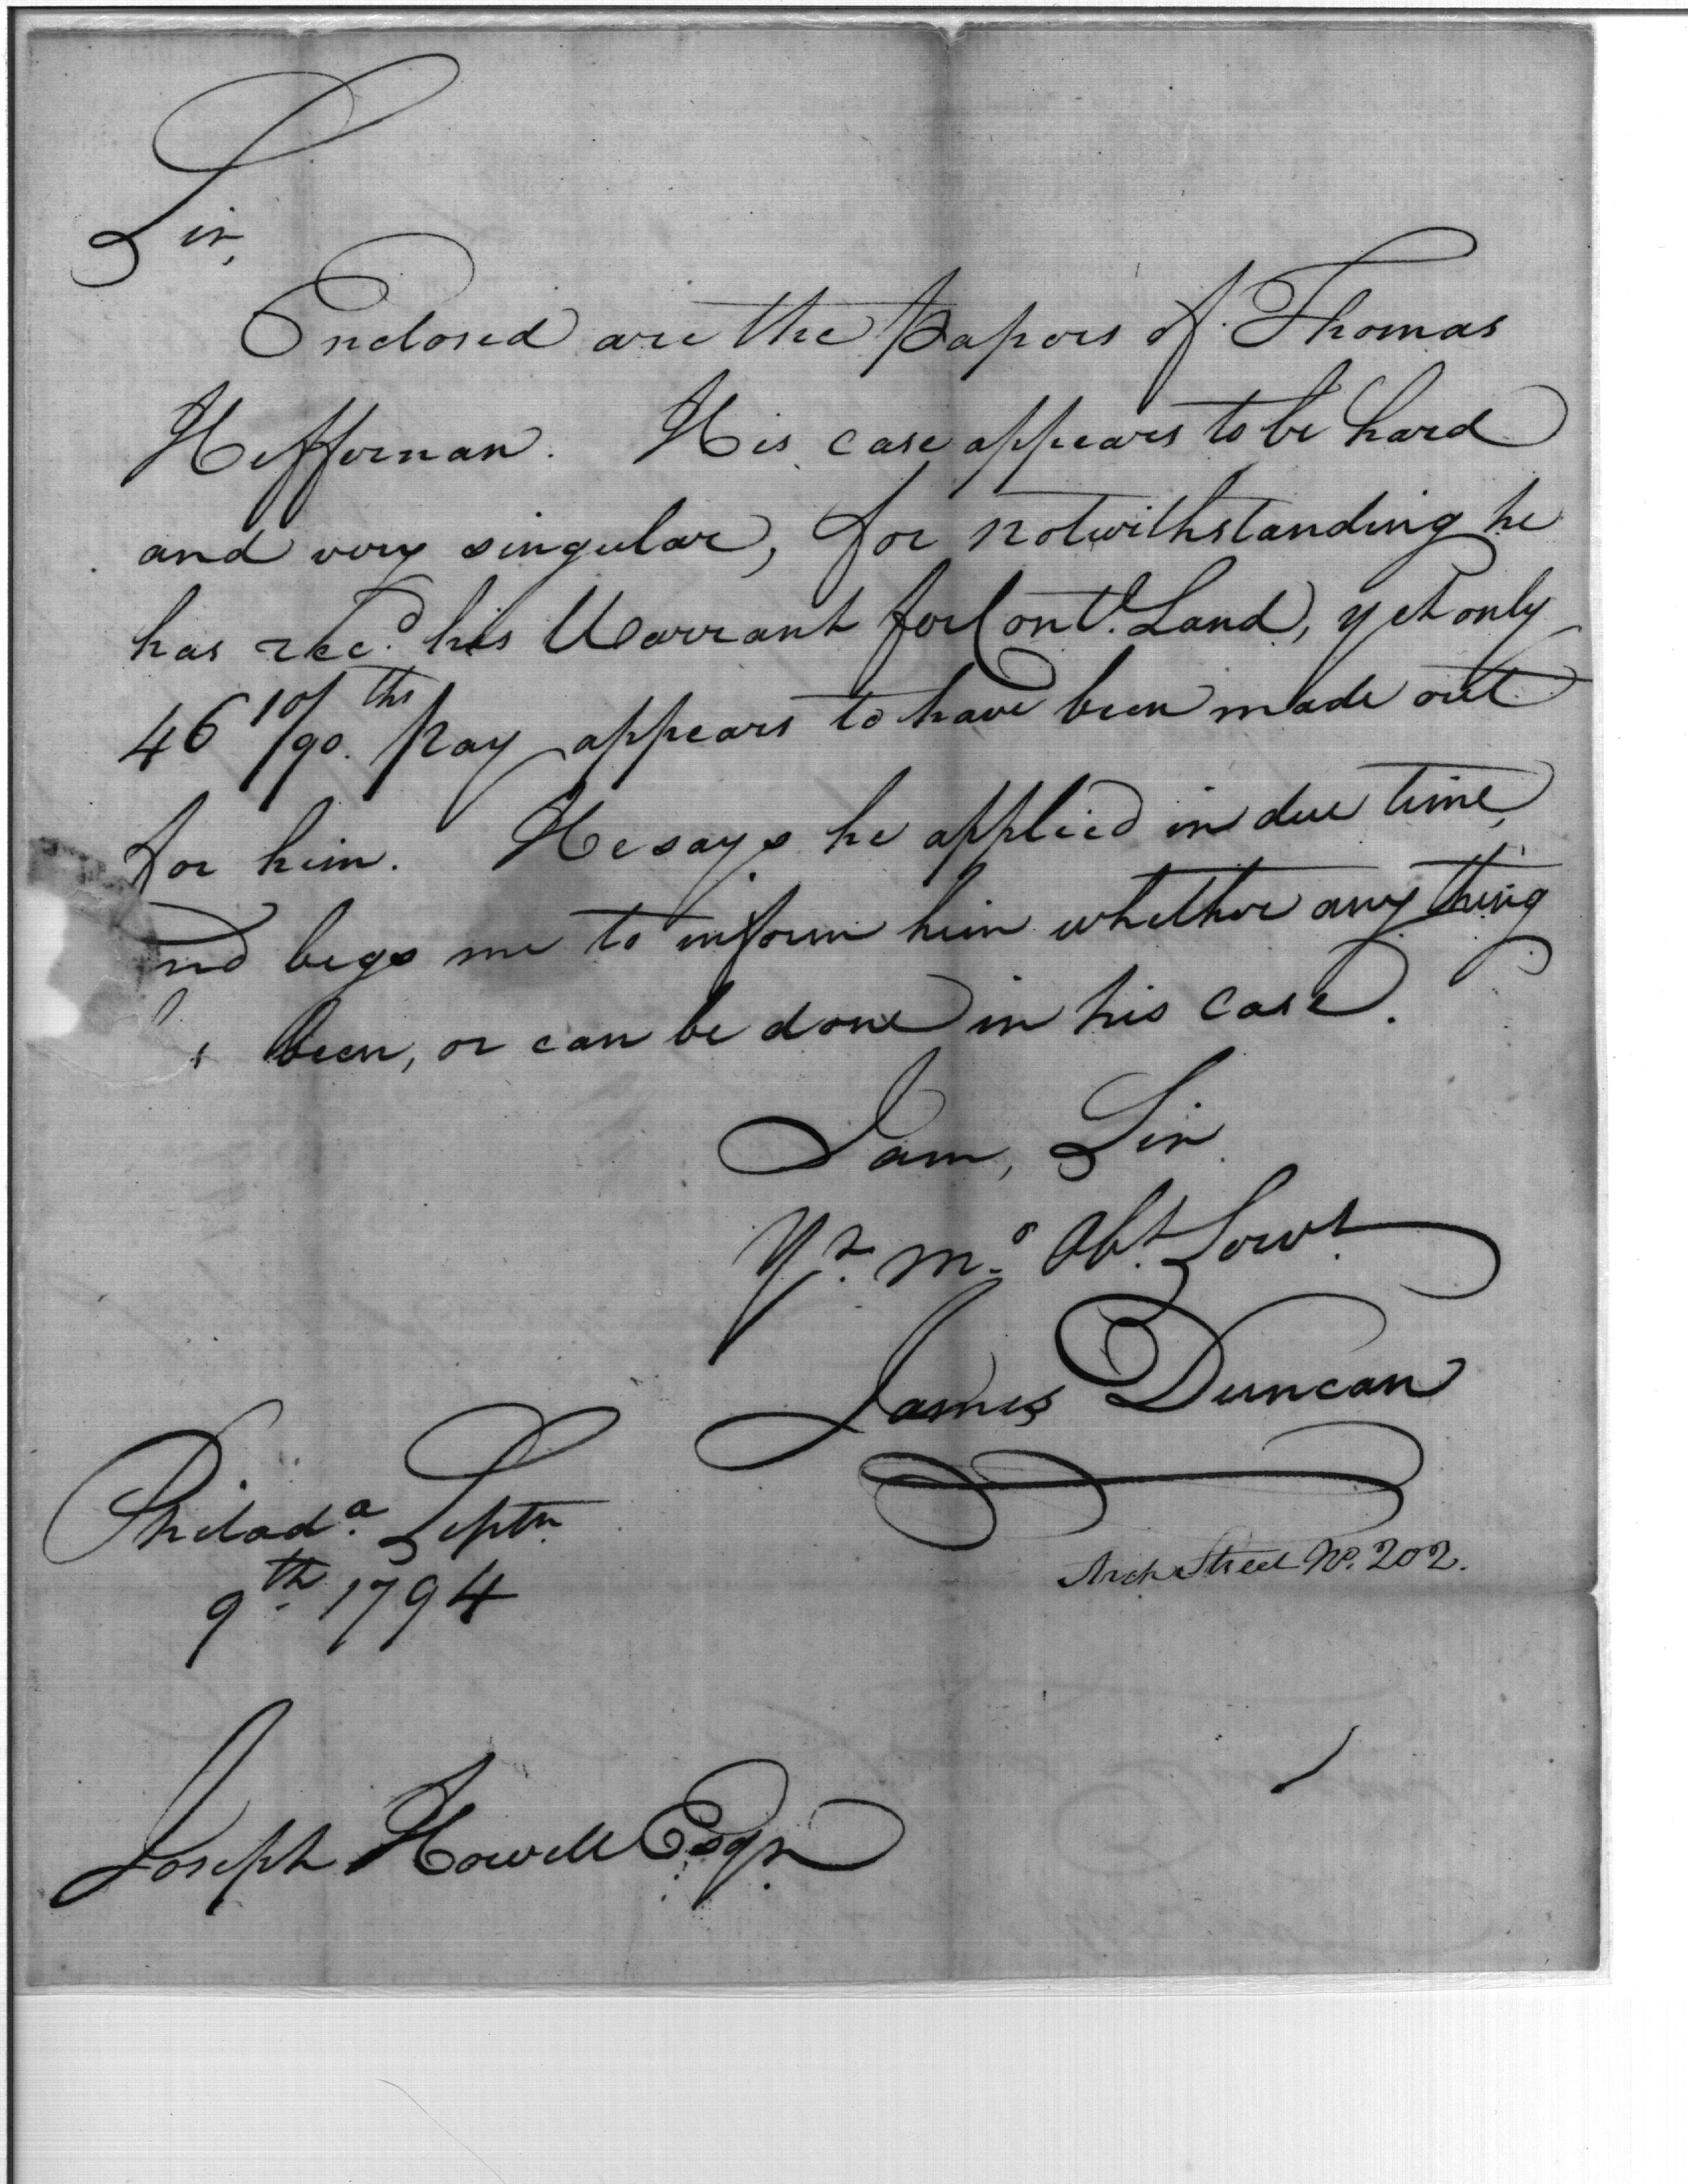 Sir,
Enclosed are the Papers of Thomas
Heffernan. His case appears to be hard
and very singular, for notwithstanding he
has recd. his Warrant for Contl. Land, yet only
46 10/90ths pay appears to have been made out
for him. He says he applied in due time,
nd begs me to inform him whether any thing
s been, or can be done in his case.
I am, Sir
Yr. mo. Obt. Servt.
James Duncan
Philada. Septr.
9th. 1794
Arch Street No. 202.
Joseph Howell Esqr.